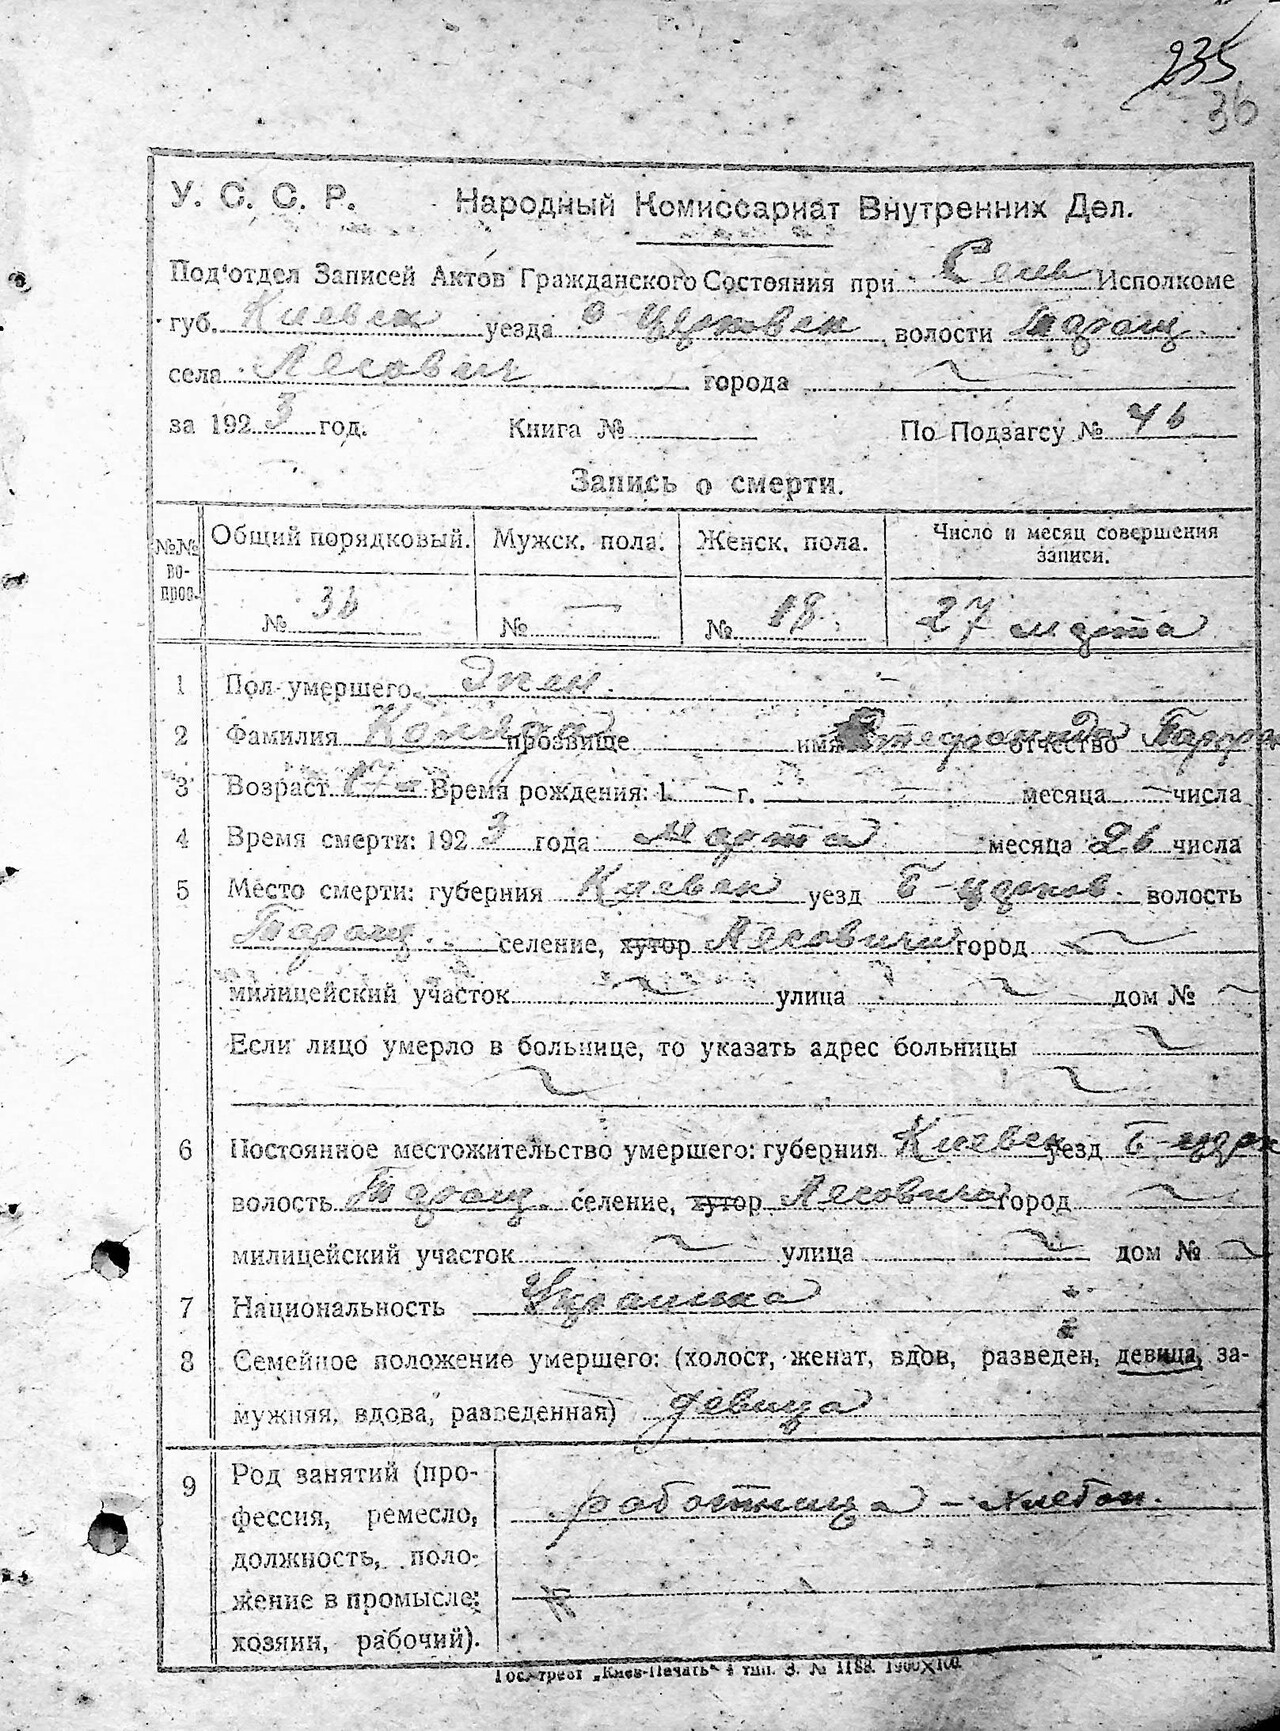 235
36
У. С. С. Р. Народный Комиссариат Внутренних Дел.
Под'отдел Записей Актов Гражданского Состояния при Сель Исполкоме
губ. Киевск уезда Церковск волости Таращ.
села Лесович города
за 1923 год. Книга № По Подзагсу № 46
Запись о смерти.
№№ во-прос. Общий порядковый. Мужск. пола. Женск. пола. Число и месяц совершения записи.
№ 36 № — № 18 27 марта
1 Пол умершего Жен.
2 Фамилия прозвище имя отчество
3 Возраст 17 л Время рождения: 1 — г. месяца — числа
4 Время смерти: 1923 года Марта месяца 26 числа
5 Место смерти: губерния Киевск уезд Б-церков. волость
Таращ. селение, хутор Лесовичи город
милицейский участок улица дом №
Если лицо умерло в больнице, то указать адрес больницы
6 Постоянное местожительство умершего: губерния Киевск уезд Б-церк
волость Таращ. селение, хутор Лесовичи город
милицейский участок улица дом №
7 Национальность Украинка
8 Семейное положение умершего: (холост, женат, вдов, разведен, девица, за-
мужняя, вдова, разведенная) девица
9 Род занятий (про-
фессия, ремесло, работница – хлебоп.
должность, поло-
жение в промысле:
хозяин, рабочий).
Гос. трест „Киев-Печать" 4 тип. З. № 1188. 1900×100.